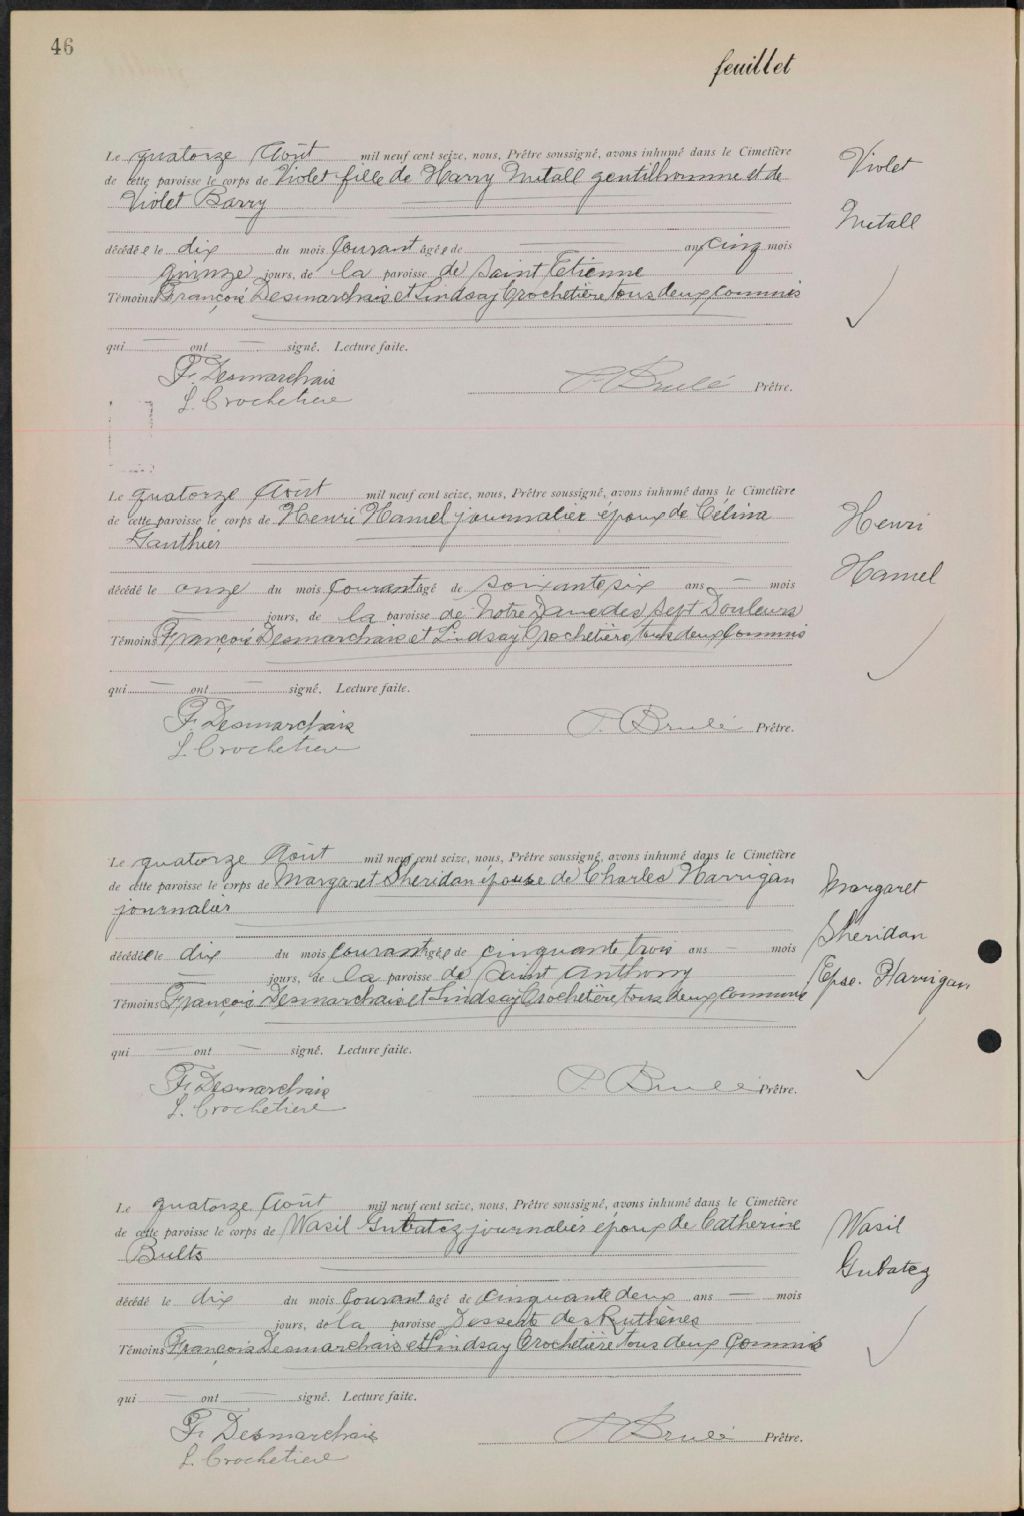 46
feuillet
Le quatorze Août mil neuf cent seize, nous, Prêtre soussigné, avons inhumé dans le Cimetière
de cette paroisse le corps de Violet fille de Harry Nutall gentilhomme et de
Violet Barry
décédée le dix du mois Courant âgée de ans cinq mois
quinze jours, de la paroisse de Saint Etienne
Témoins François Desmarchais et Lindsay Crochetière tous deux commis
qui ont signé. Lecture faite.
F. Desmarchais
L. Crochetiere
P. Brulé Prêtre.
Violet
Nutall
Le quatorze Août mil neuf cent seize, nous, Prêtre soussigné, avons inhumé dans le Cimetière
de cette paroisse le corps de Henri Hamel journalier époux de Célina
Gauthier
décédé le onze du mois Courant âgé de soixante six ans mois
jours, de la paroisse de Notre Dame des Sept Douleurs
Témoins François Desmarchais et Lindsay Crochetière tous deux Commis
qui ont signé. Lecture faite.
F. Desmarchais
L. Crochetiere
P. Brulé Prêtre.
Henri
Hamel
Le quatorze Août mil neuf cent seize, nous, Prêtre soussigné, avons inhumé dans le Cimetière
de cette paroisse le corps de Margaret Sheridan épouse de Charles Harrigan
journalier
décédée le dix du mois Courant âgée de cinquante trois ans mois
jours, de la paroisse de Saint Anthony
Témoins François Desmarchais et Lindsay Crochetière tous deux Commis
qui ont signé. Lecture faite.
F. Desmarchais
L. Crochetiere
P. Brulé Prêtre.
Margaret
Sheridan
Epse. Harrigan
Le quatorze Août mil neuf cent seize, nous, Prêtre soussigné, avons inhumé dans le Cimetière
de cette paroisse le corps de Wasil Gubatez journalier époux de Catherine
Bults
décédé le dix du mois Courant âgé de Cinquante deux ans mois
jours, de la paroisse des Ruthènes
Témoins François Desmarchais et Lindsay Crochetière tous deux Commis
qui ont signé. Lecture faite.
F. Desmarchais
L. Crochetiere
P. Brulé Prêtre.
Wasil
Gubatez